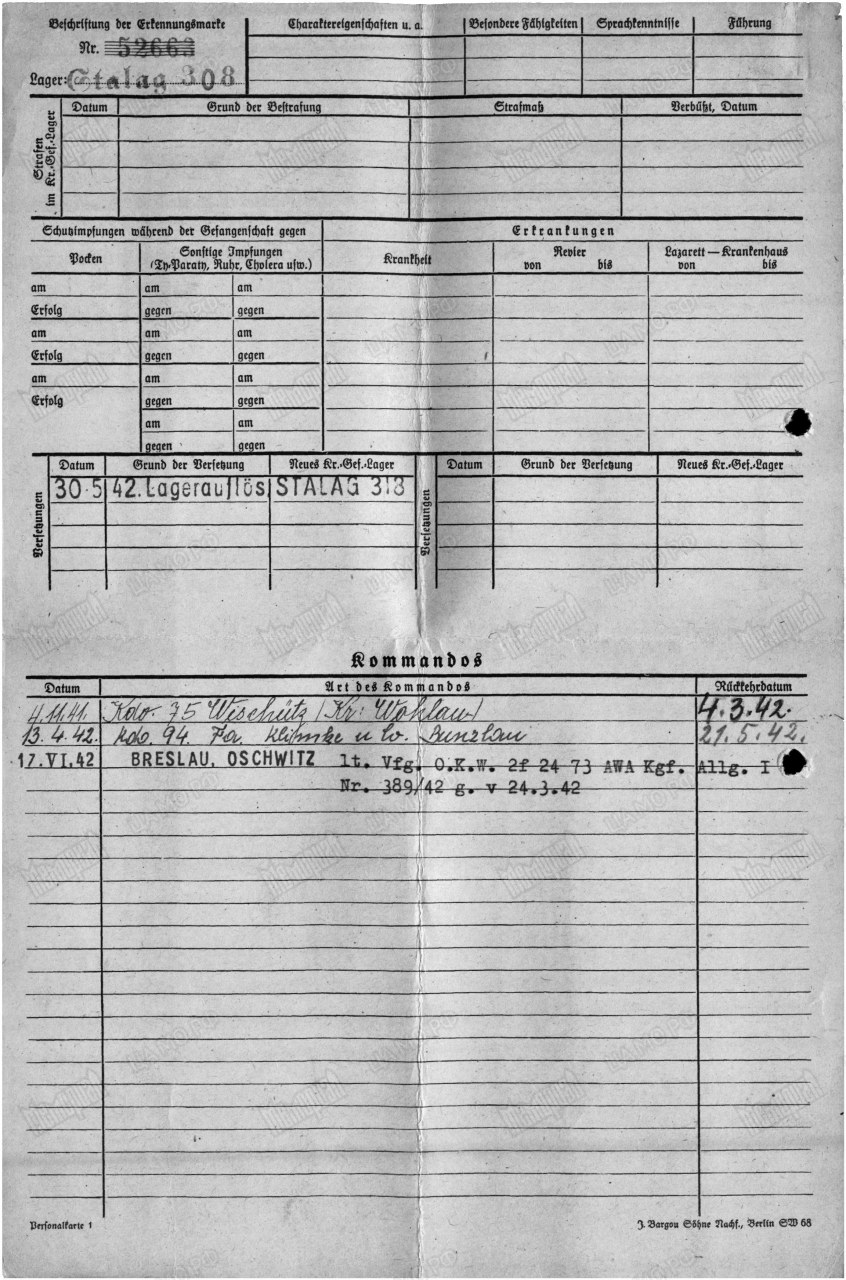 Beschriftung der Erkennungsmarke
Nr. 52663
Lager: Stalag 308
Charaktereigenschaften u. a.
Besondere Fähigkeiten
Sprachkenntnisse
Führung
Strafen im Kr.-Gef.-Lager
Datum
Grund der Bestrafung
Strafmaß
Verbüßt, Datum
Schutzimpfungen während der Gefangenschaft gegen
Erkrankungen
Pocken
Sonstige Impfungen
(Ty-Paraty, Ruhr, Cholera usw.)
Krankheit
Revier
von bis
Lazarett — Krankenhaus
von bis
am am am
Erfolg gegen gegen
am am am
Erfolg gegen gegen
am am am
Erfolg gegen gegen
am am
gegen gegen
Versetzungen
Datum Grund der Versetzung Neues Kr.-Gef.-Lager
30.5 42. Lagerauflös STALAG 318
Versetzungen
Datum Grund der Versetzung Neues Kr.-Gef.-Lager
Kommandos
Datum Art des Kommandos Rückkehrdatum
4.11.41. Kdo. 75 Wischütz (Kr: Wohlau) 4.3.42.
13.4.42. Kdo. 94. Fa. Bunzlau 21.5.42.
17.VI.42 BRESLAU, OSCHWITZ lt. Vfg. O.K.W. 2f 24 73 AWA Kgf. Allg. I
Nr. 389/42 g. v 24.3.42
Personalkarte 1
J. Bargou Söhne Nachf., Berlin SW 68
Мемориал
ЦАМО РФ